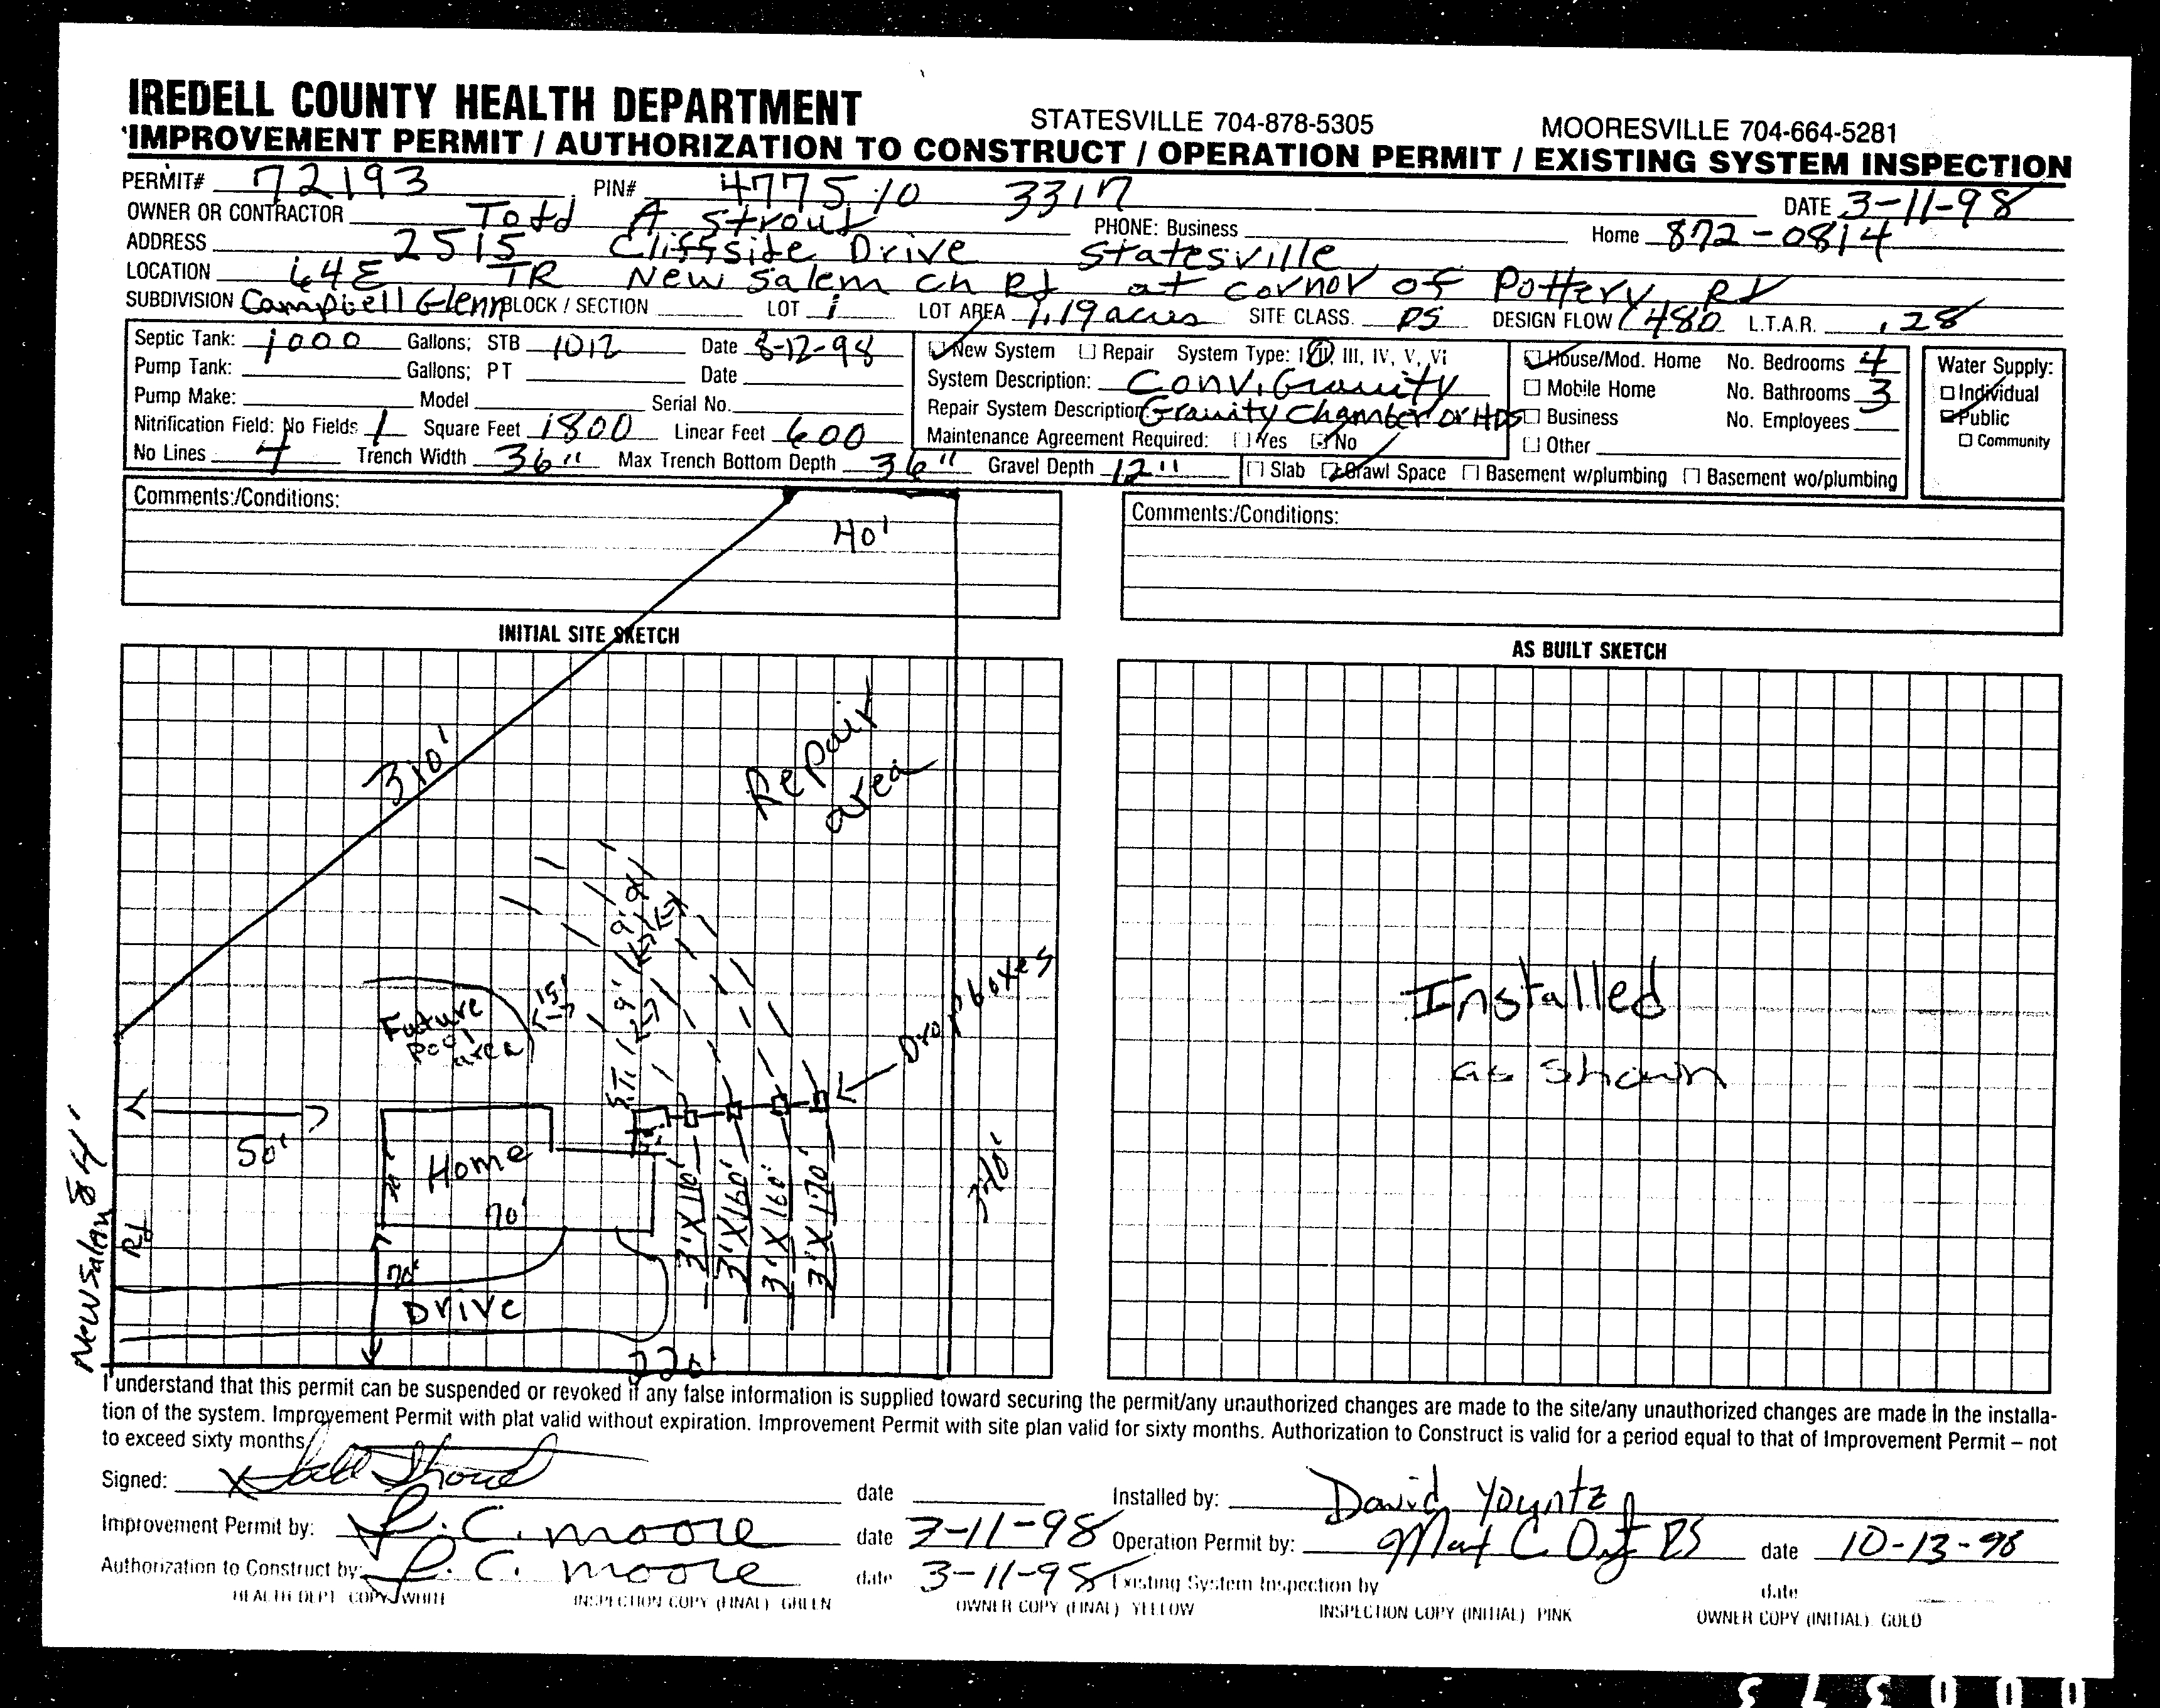 IREDELL COUNTY HEALTH DEPARTMENT
STATESVILLE 704-878-5305 MOORESVILLE 704-664-5281
IMPROVEMENT PERMIT / AUTHORIZATION TO CONSTRUCT / OPERATION PERMIT / EXISTING SYSTEM INSPECTION
PERMIT# 72193 PIN# 4775 10 3317 DATE 3-11-98
OWNER OR CONTRACTOR Todd A Strout PHONE: Business Home 872-0814
ADDRESS 2515 Cliffside Drive Statesville
LOCATION 64E TR New Salem Ch Rd at cornor of Pottery Rd
SUBDIVISION Campbell Glenn BLOCK / SECTION LOT 1 LOT AREA 1.19 acres SITE CLASS. PS DESIGN FLOW 480 L.T.A.R. .28
Septic Tank: 1000 Gallons; STB 1012 Date 8-12-98
Pump Tank: Gallons; PT Date
Pump Make: Model Serial No.
Nitrification Field: No Fields 1 Square Feet 1800 Linear Feet 600
No Lines 4 Trench Width 36" Max Trench Bottom Depth 36" Gravel Depth 12"
New System Repair System Type: I, II, III, IV, V, VI
System Description: Conv. Gravity
Repair System Description Gravity Chamber or HDS
Maintenance Agreement Required: Yes No
Slab Crawl Space Basement w/plumbing Basement wo/plumbing
House/Mod. Home No. Bedrooms 4
Mobile Home No. Bathrooms 3
Business No. Employees
Other
Water Supply:
Individual
Public
Community
Comments:/Conditions:
Comments:/Conditions:
40'
INITIAL SITE SKETCH
AS BUILT SKETCH
Repair
area
310'
9'
9'
15'
Future
pool
area
Drop boxes
S.T.
50'
Home
70'
84'
New Salem
Rd
3'X110'
3'X160'
3'X160'
3'X170'
70'
Drive
220'
Installed
as shown
I understand that this permit can be suspended or revoked if any false information is supplied toward securing the permit/any unauthorized changes are made to the site/any unauthorized changes are made in the installa-
tion of the system. Improvement Permit with plat valid without expiration. Improvement Permit with site plan valid for sixty months. Authorization to Construct is valid for a period equal to that of Improvement Permit – not
to exceed sixty months.
Signed: X date Installed by: David Yountz
Improvement Permit by: R.C. Moore date 3-11-98 Operation Permit by: date 10-13-98
Authorization to Construct by: R.C. Moore date 3-11-98 Existing System Inspection by date
HEALTH DEPT COPY WHITE INSPECTION COPY (FINAL) GREEN OWNER COPY (FINAL) YELLOW INSPECTION COPY (INITIAL) PINK OWNER COPY (INITIAL) GOLD